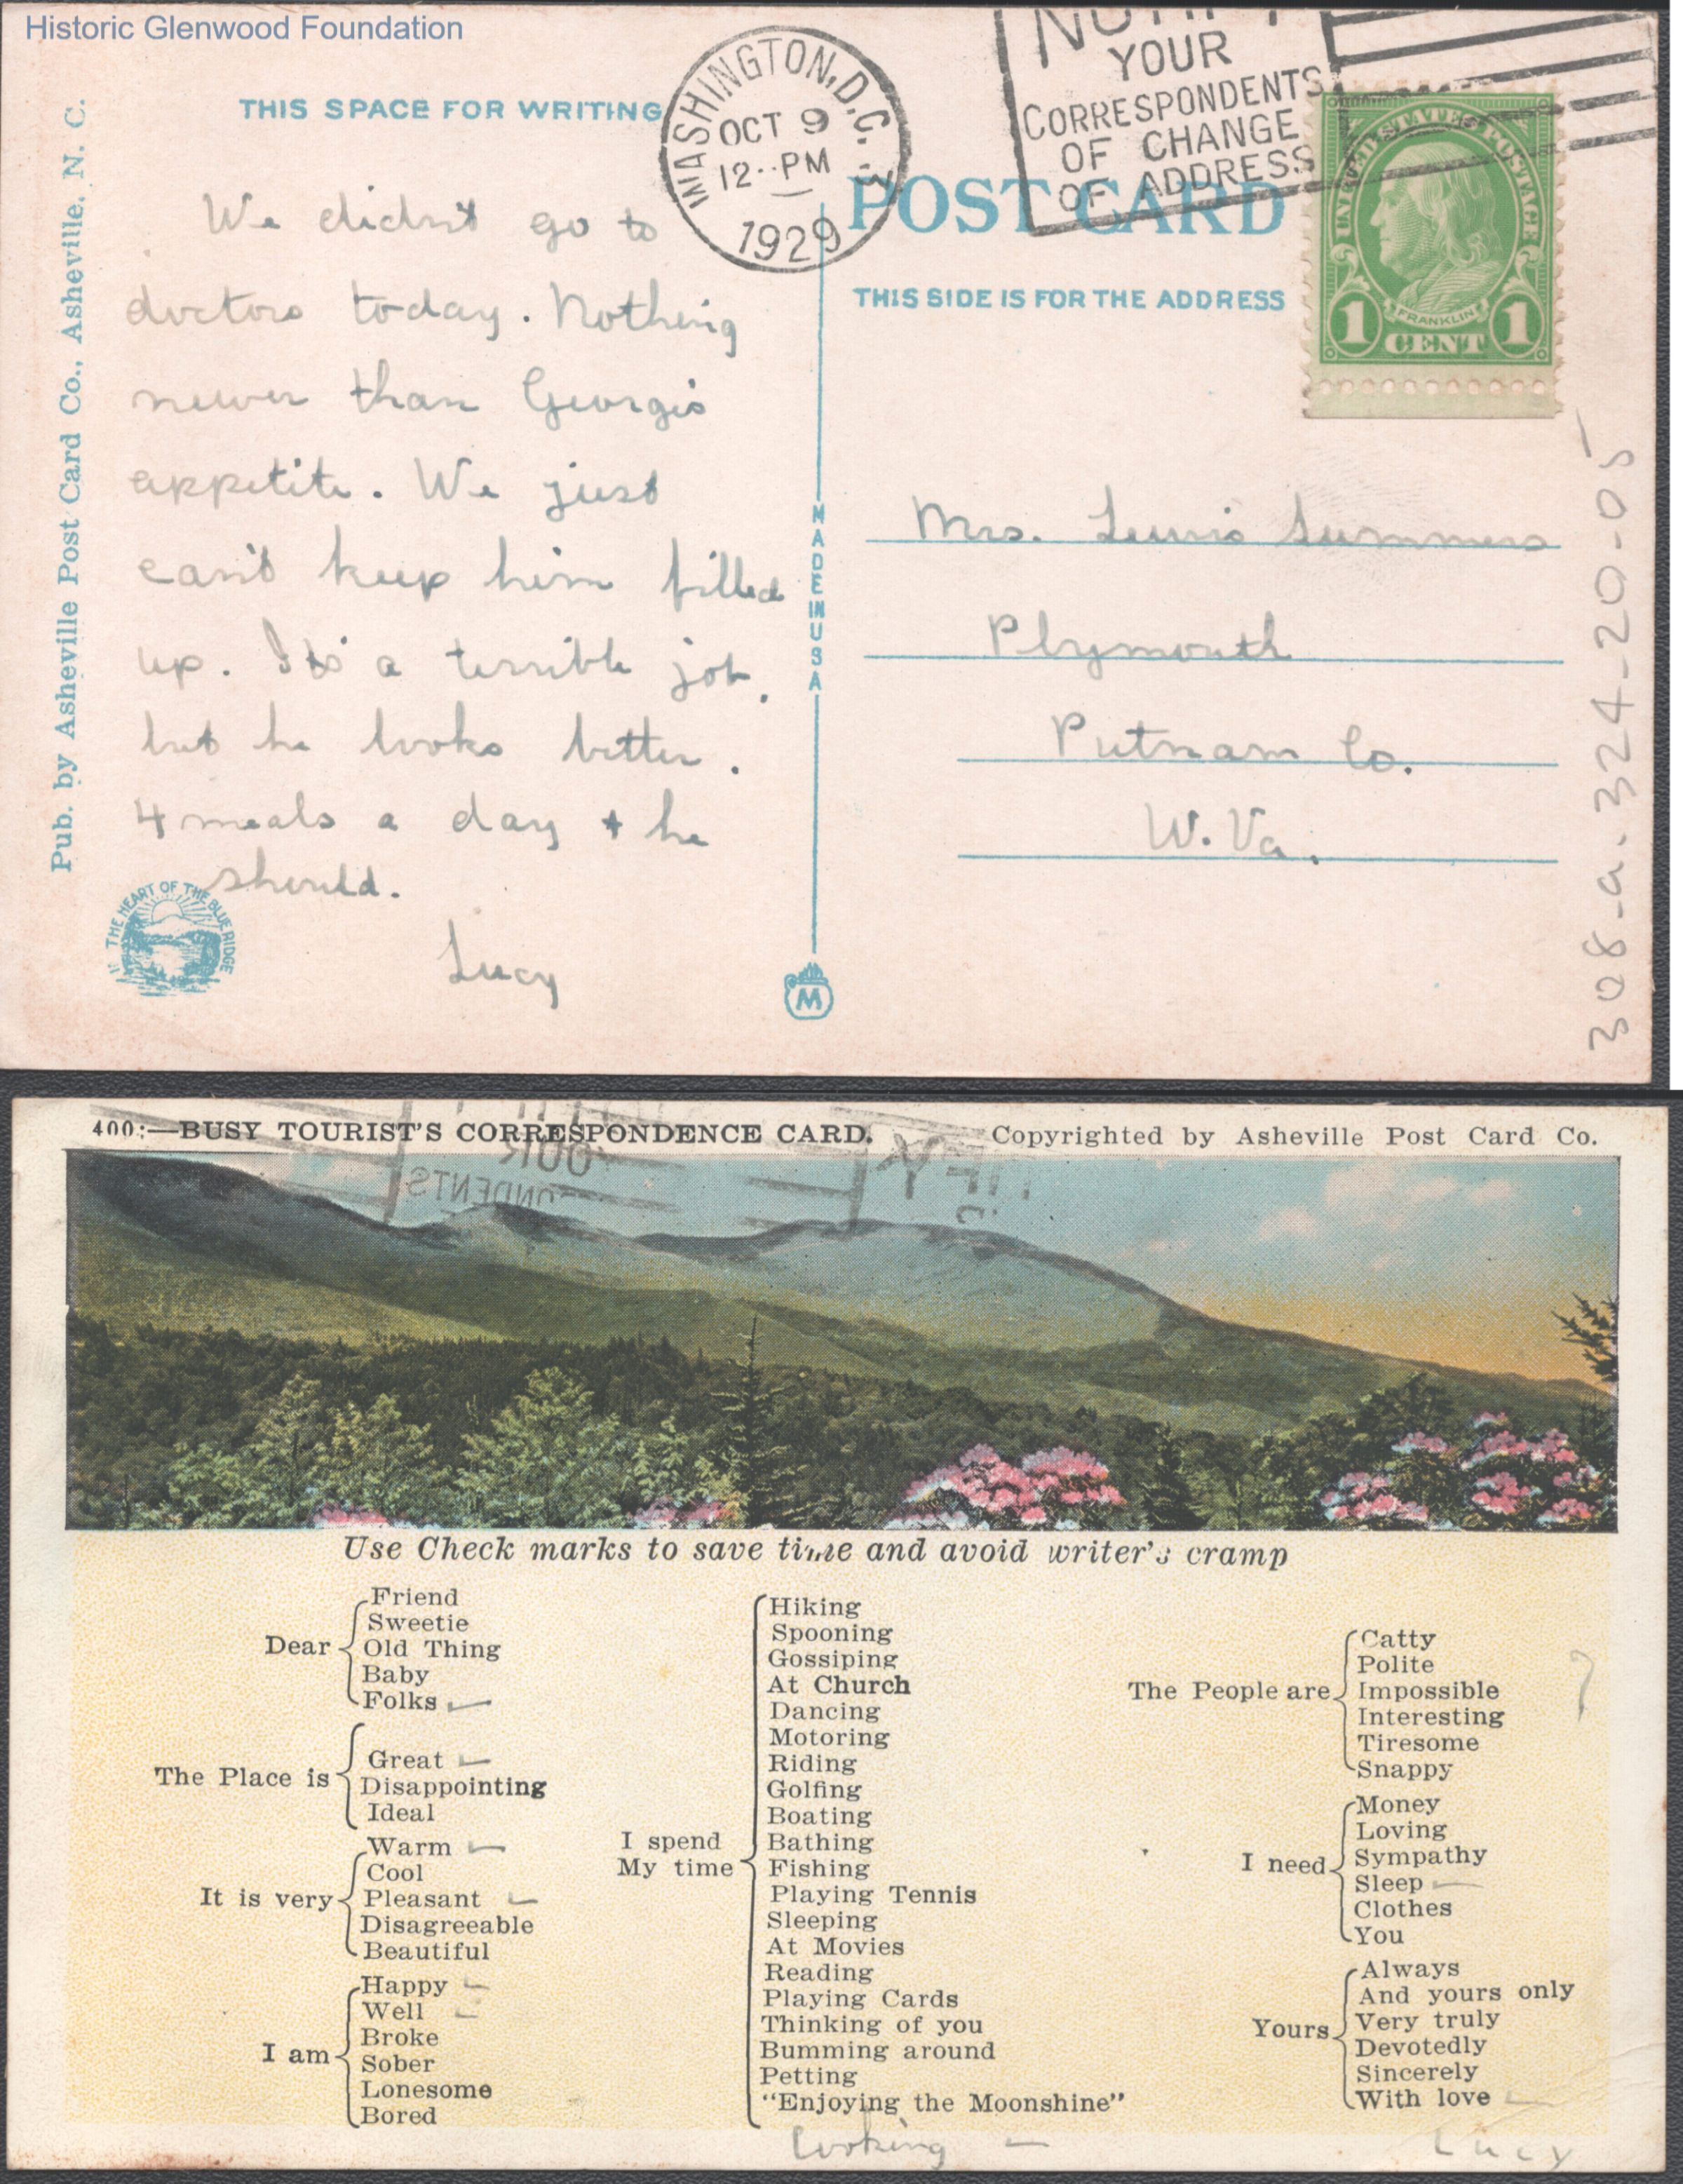 Historic Glenwood Foundation
THIS SPACE FOR WRITING
WASHINGTON, D.C.
OCT 9
12 PM
1929
NOTIFY
YOUR
CORRESPONDENTS
OF CHANGE
OF ADDRESS
UNITED STATES POSTAGE
FRANKLIN
1 CENT 1
POST CARD
THIS SIDE IS FOR THE ADDRESS
Pub. by Asheville Post Card Co., Asheville, N. C.
We didn't go to
doctors today. Nothing
newer than George's
appetite. We just
can't keep him filled
up. It's a terrible job,
but he looks better.
4 meals a day + he
should.
Lucy
IN THE HEART OF THE BLUE RIDGE
MADE IN USA
M
Mrs. Lewis Summers
Plymouth
Putnam Co.
W. Va.
308-a.324-20-05
400:—BUSY TOURIST'S CORRESPONDENCE CARD. Copyrighted by Asheville Post Card Co.
Use Check marks to save time and avoid writer's cramp
Dear
Friend
Sweetie
Old Thing
Baby
Folks
The Place is
Great
Disappointing
Ideal
It is very
Warm
Cool
Pleasant
Disagreeable
Beautiful
I am
Happy
Well
Broke
Sober
Lonesome
Bored
I spend
My time
Hiking
Spooning
Gossiping
At Church
Dancing
Motoring
Riding
Golfing
Boating
Bathing
Fishing
Playing Tennis
Sleeping
At Movies
Reading
Playing Cards
Thinking of you
Bumming around
Petting
"Enjoying the Moonshine"
Looking
The People are
Catty
Polite
Impossible
Interesting
Tiresome
Snappy
?
I need
Money
Loving
Sympathy
Sleep
Clothes
You
Yours
Always
And yours only
Very truly
Devotedly
Sincerely
With love
Lucy